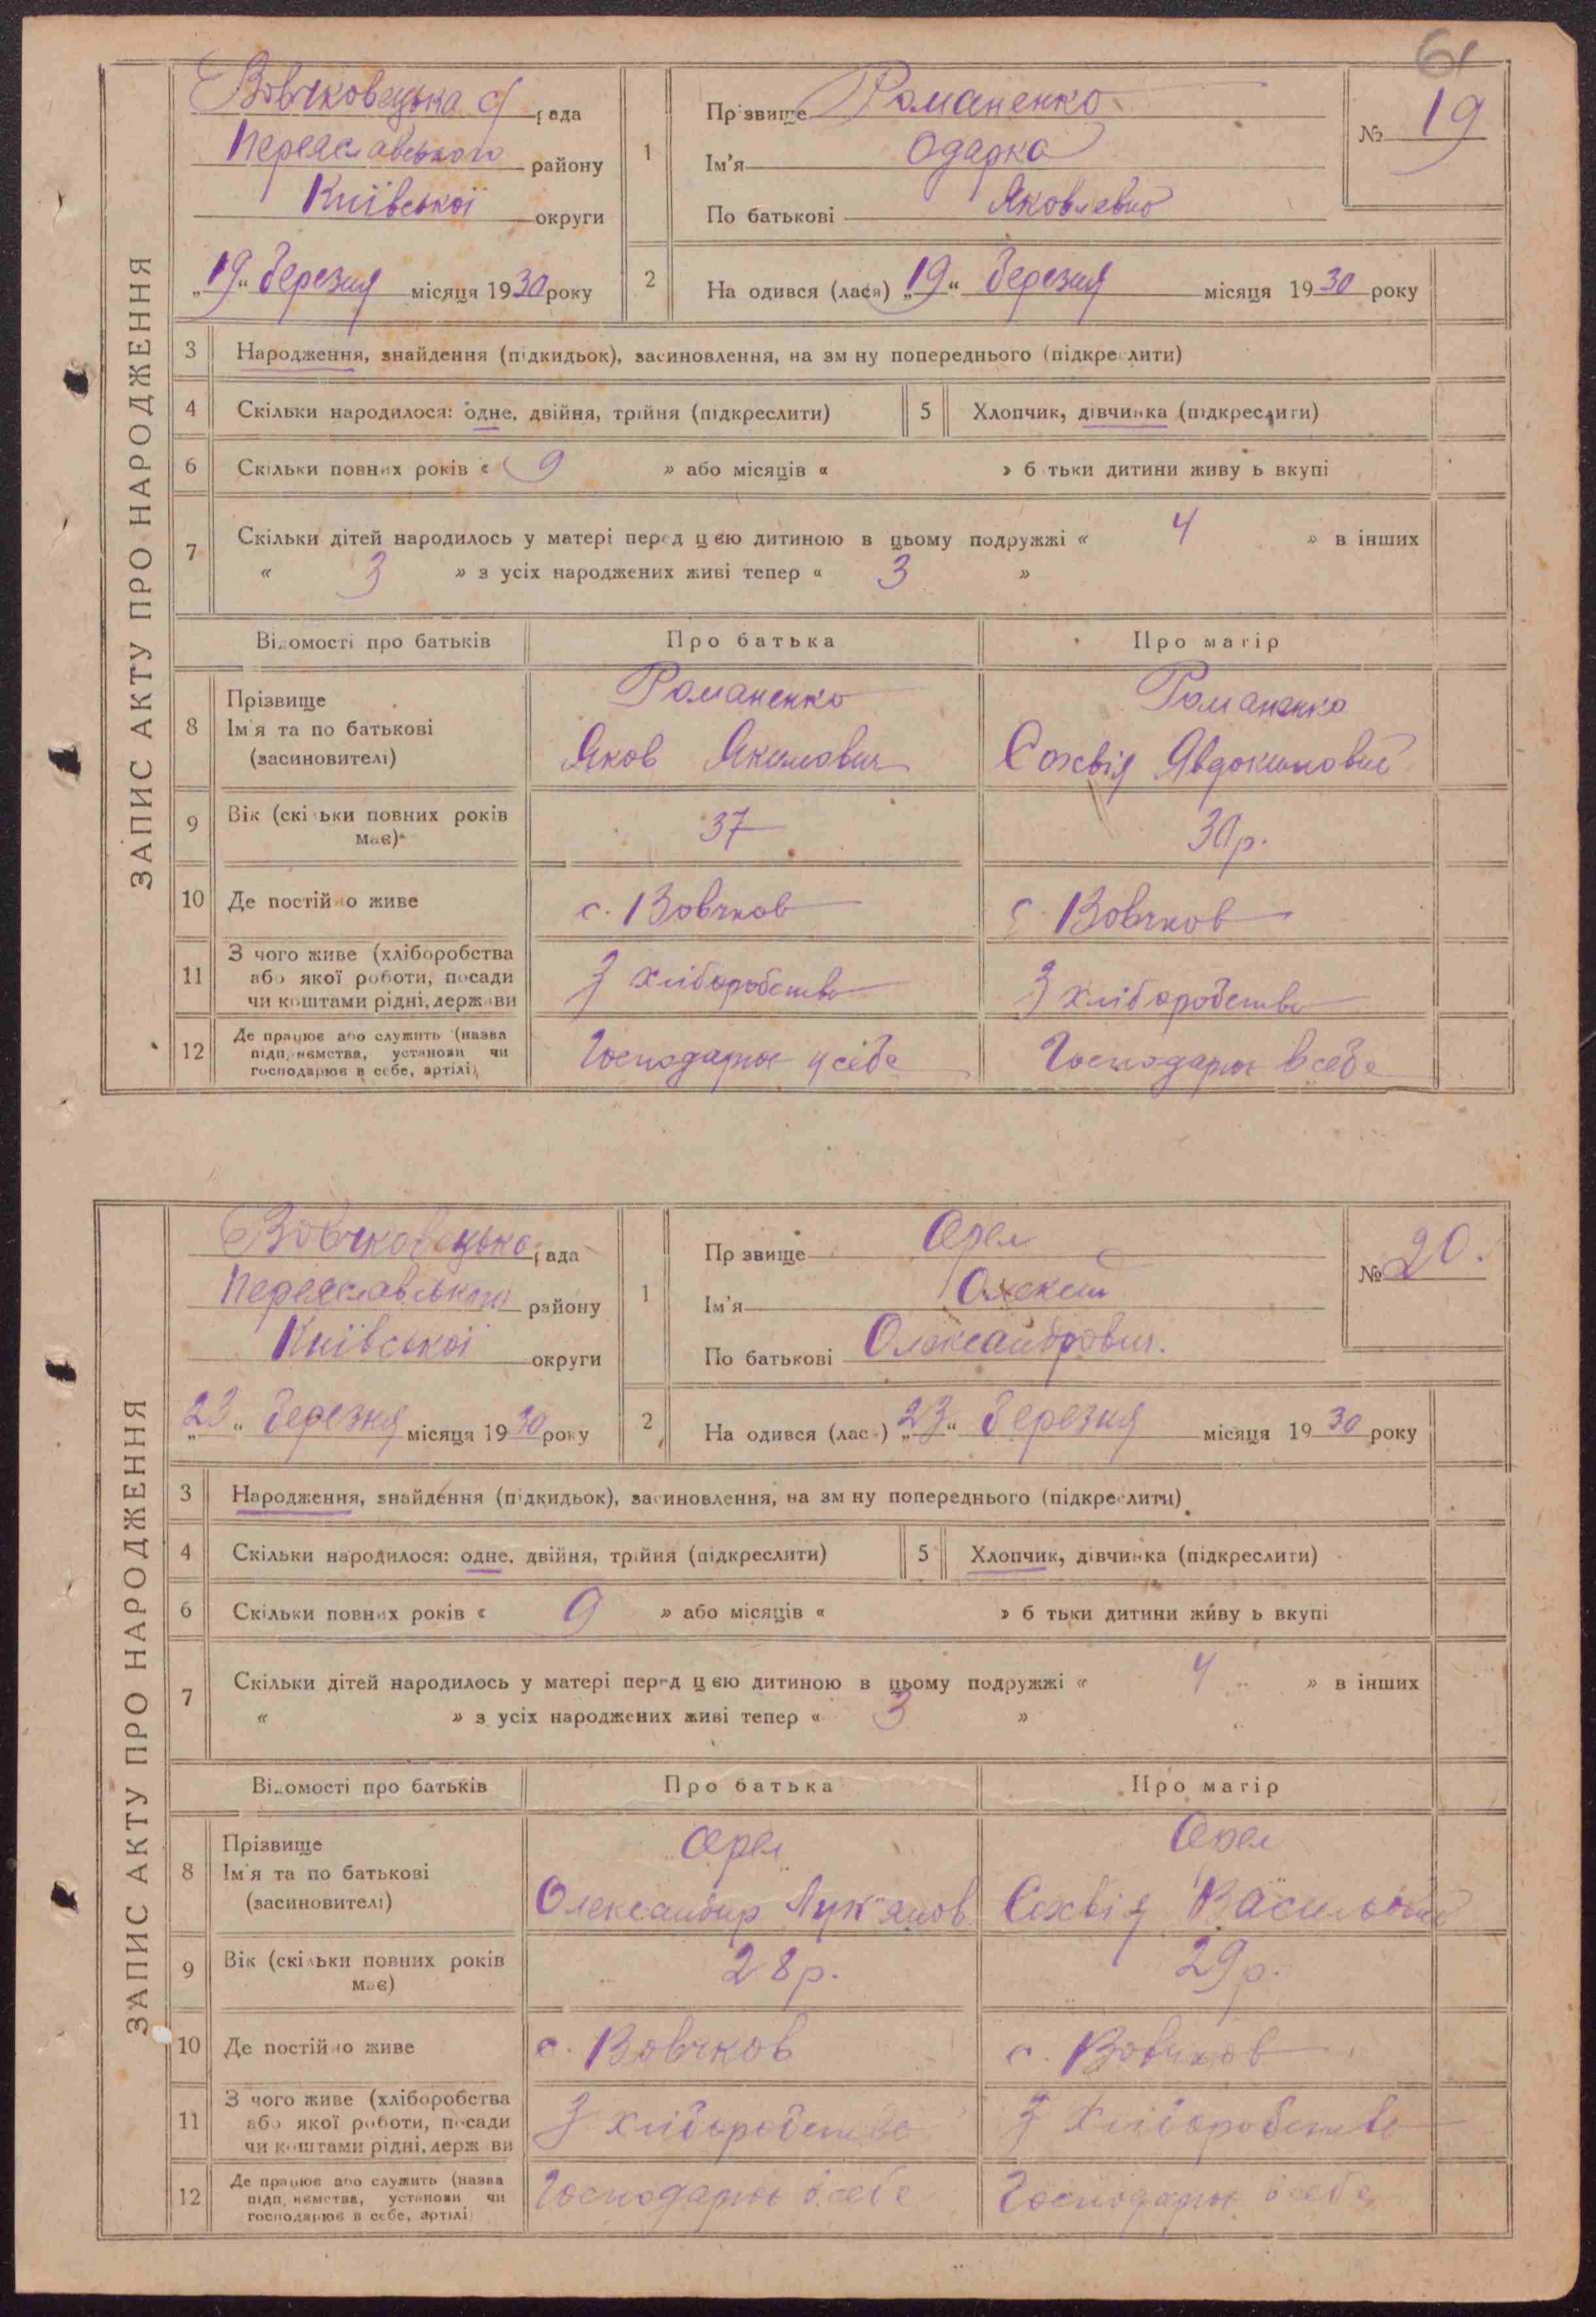 61
ЗАПИС АКТУ ПРО НАРОДЖЕННЯ
Вовчковецька с/рада
Переяславського району
Київської округи
„19“ березня місяця 1930 року
1
Прізвище Романенко
Ім’я Одарка
По батькові Яковлевно
№ 19
2
На одився (лася) „19“ березня місяця 1930 року
3 Народження, знайдення (підкидьок), засиновлення, на зм ну попереднього (підкреслити)
4 Скільки народилося: одне, двійня, трійня (підкреслити) 5 Хлопчик, дівчинка (підкреслити)
6 Скільки повних років « 9 » або місяців « » б тьки дитини живу ь вкупі
7 Скільки дітей народилось у матері перед цією дитиною в цьому подружжі « 4 » в інших
« 3 » з усіх народжених живі тепер « 3 »
Відомості про батьків Про батька Про матір
8 Прізвище
Ім'я та по батькові
(засиновителі)
Романенко
Яков Якимович
Романенко
Сохвія Явдокимовн
9 Вік (скільки повних років має)
37
30 р.
10 Де постійно живе с. Вовчков с. Вовчков
11 З чого живе (хліборобства
або якої роботи, посади
чи коштами рідні, держави
З хліборобства
З хліборобства
12 Де працює або служить (назва
підприємства, установи чи
господарює в себе, артілі)
Господарює у себе
Господарює в себе
ЗАПИС АКТУ ПРО НАРОДЖЕННЯ
Вовчковецька рада
Переяславського району
Київської округи
„23“ березня місяця 1930 року
1
Пр звище Орел
Ім’я Олексій
По батькові Олександрович.
№ 20.
2
На одився (лас ) „23“ березня місяця 1930 року
3 Народження, знайдення (підкидьок), засиновлення, на зм ну попереднього (підкреслити)
4 Скільки народилося: одне, двійня, трійня (підкреслити) 5 Хлопчик, дівчинка (підкреслити)
6 Скільки повних років « 9 » або місяців « » б тьки дитини живу ь вкупі
7 Скільки дітей народилось у матері перед цією дитиною в цьому подружжі « 4 » в інших
« » з усіх народжених живі тепер « 3 »
Відомості про батьків Про батька Про матір
8 Прізвище
Ім'я та по батькові
(засиновителі)
Орел
Олександр Лук'янов
Орел
Сохвія Васильовна
9 Вік (скільки повних років має)
28 р.
29 р.
10 Де постійно живе с. Вовчков с. Вовчков
11 З чого живе (хліборобства
або якої роботи, посади
чи коштами рідні, держ ви
З хліборобства
З хліборобства
12 Де працює або служить (назва
підприємства, установи чи
господарює в себе, артілі
Господарює в себе
Господарює в себе